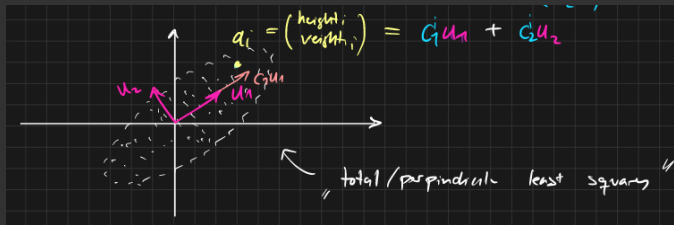 aᵢ = (heightᵢ weightᵢ) = c₁u₁ + c₂u₂
c₁u₁
u₂
u₁
"total/perpindicular least squares"